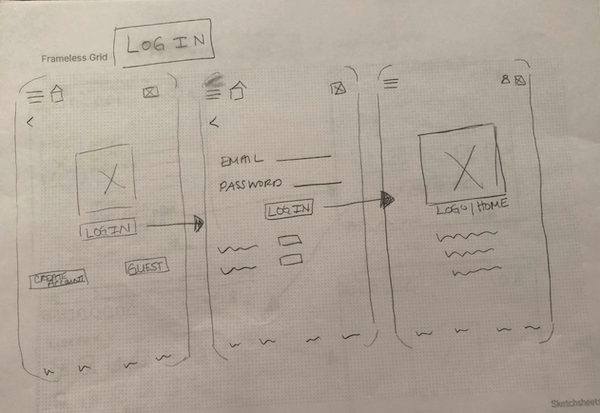 Frameless Grid
LOG IN
LOGIN
CREATE
Account
GUEST
EMAIL
PASSWORD
LOGIN
LOGO/HOME
Sketchsheets